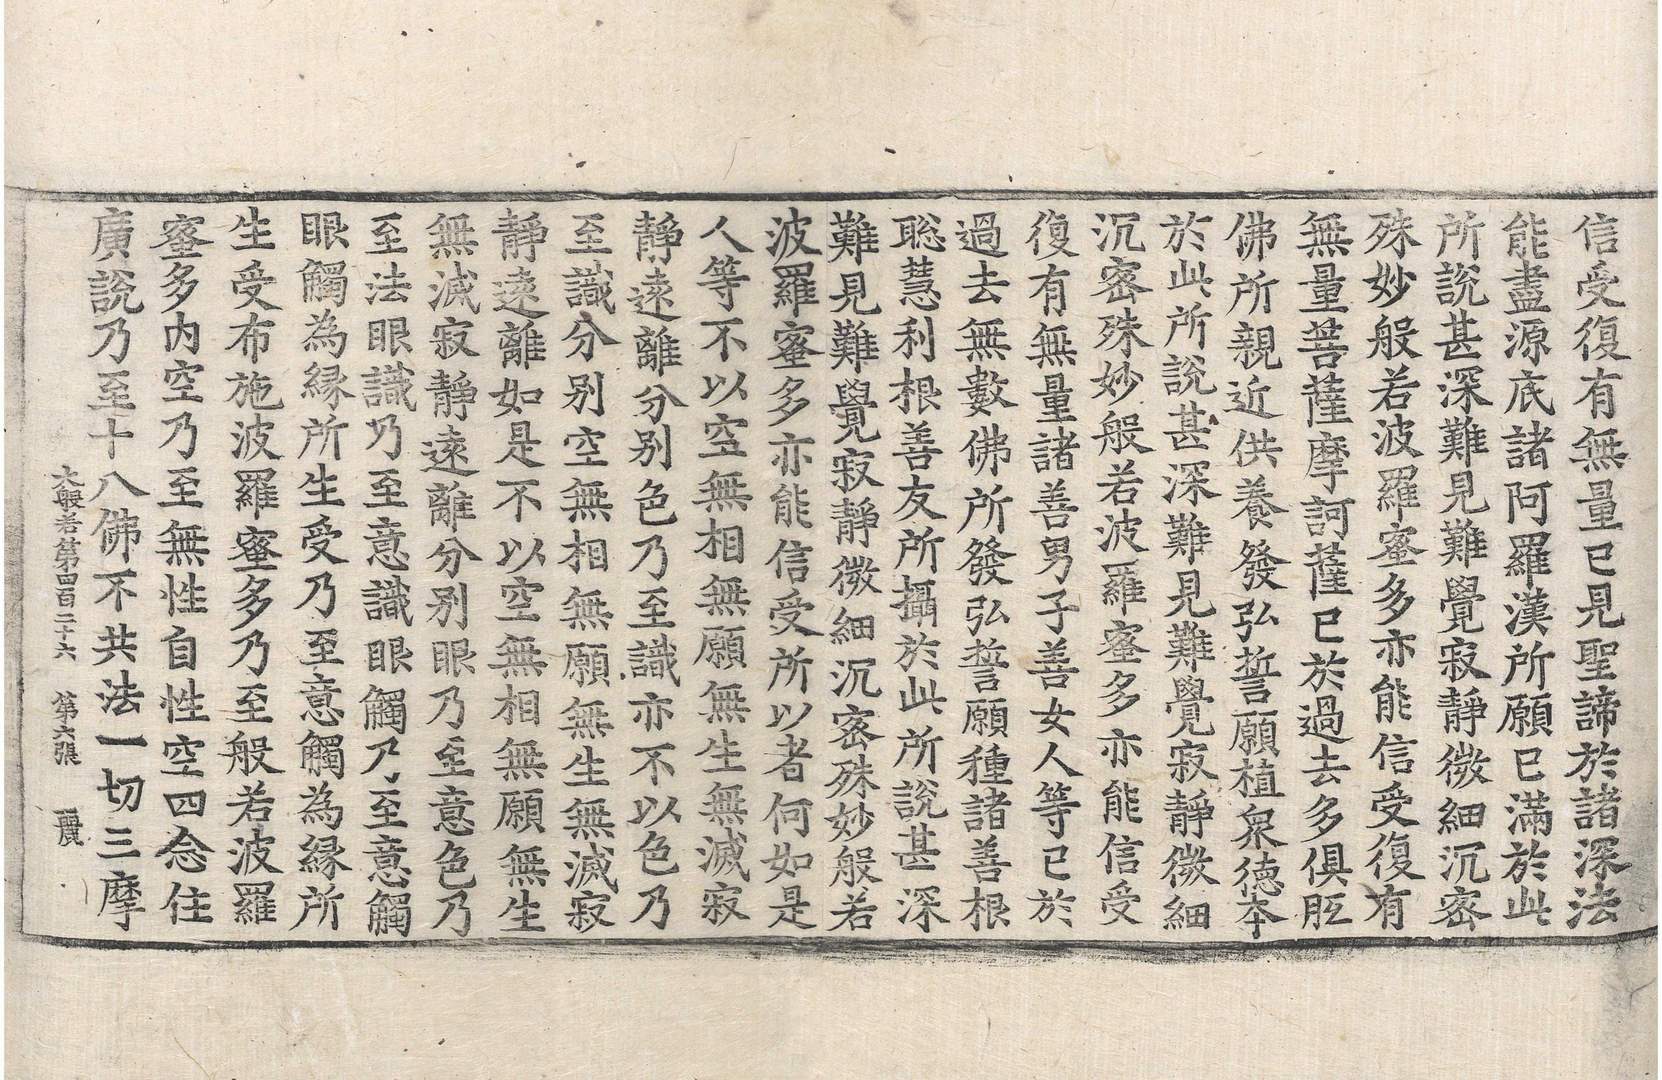 信受復有無量已見聖諦於諸深法
能盡源底諸阿羅漢所願已滿於此
所說甚深難見難覺寂靜微細沉密
殊妙般若波羅蜜多亦能信受復有
無量菩薩摩訶薩已於過去多俱胝
佛所親近供養發弘誓願植衆德本
於此所說甚深難見難覺寂靜微細
沉密殊妙般若波羅蜜多亦能信受
復有無量諸善男子善女人等已於
過去無數佛所發弘誓願種諸善根
聡慧利根善友所攝於此所說甚深
難見難覺寂靜微細沉密殊妙般若
波羅蜜多亦能信受所以者何如是
人等不以空無相無願無生無滅寂
靜遠離分別色乃至識亦不以色乃
至識分別空無相無願無生無滅寂
靜遠離如是不以空無相無願無生
無滅寂靜遠離分別眼乃至意色乃
至法眼識乃至意識眼觸乃至意觸
眼觸為緣所生受乃至意觸為緣所
生受布施波羅蜜多乃至般若波羅
蜜多內空乃至無性自性空四念住
廣說乃至十八佛不共法一切三摩
大般若第四百二十六 第六張 麗